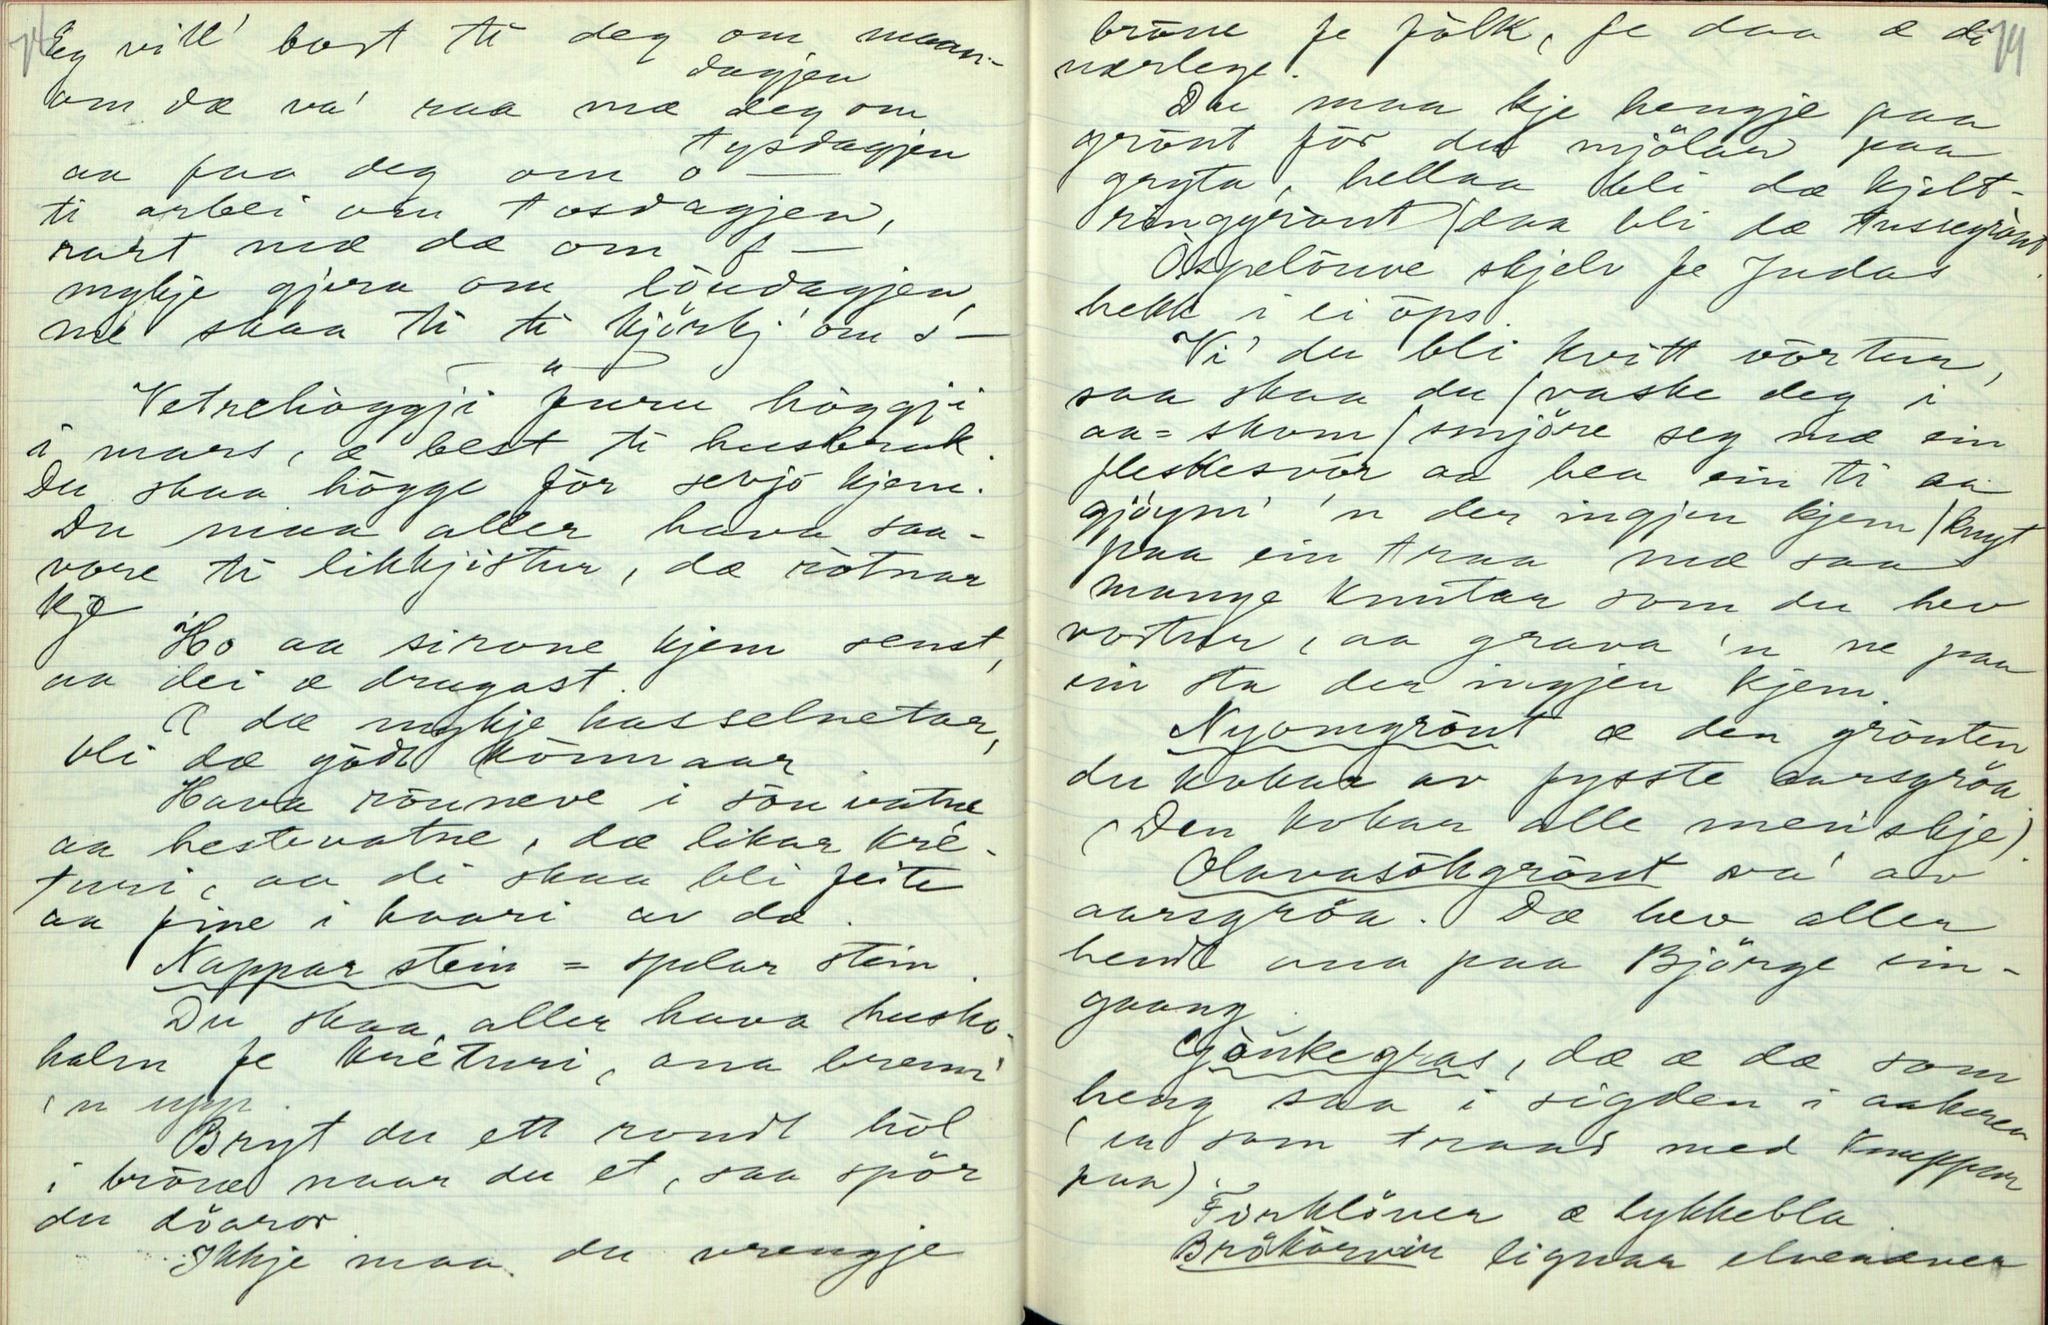 74
Eg vill' bort ti deg om maan-
dagjen
om dæ va' raa mæ deg om
tysdagjen
aa faa deg om o —
ti arbei om tosdagjen,
rart mæ dæ om f —
mykje gjera om löudagjen,
me skaa ti ti kjörkj' om s —
— " —
Vetrehöggji furu höggji
i mars, æ best ti husbruk.
Du skaa högge för sevjo kjem.
Du maa aller hava saa-
vore ti likkjistur, dæ rötnar
kje
Ho aa sirone kjem senst,
aa dei æ drugast.
Æ dæ mykje hasselnetar,
bli dæ godt könnaar
Hava rönneve i sön vatne
aa hestevatne, dæ likar kre-
turi, aa di skaa bli feite
aa fine i haari av dæ.
Nappar stein = spelar stein.
Du skaa aller hava husko-
halm fe kréturi, ona brenn'
'n upp.
Bryt du ett rundt höl
i bröue naar du et, saa spör
du döaror
Ikkje maa du vrengje
bröue fe fölk, fe daa æ di
nærlege.
74
Du maa kje hengje paa
grönt för du mjölar paa
gryta, hellaa bli dæ kjelt-
ringgröut (daa bli dæ tussegröut.
Ospelöuve skjelv fe Judas
hekk i ei öps.
Vi' du bli kvitt vörtur,
saa skaa du / vaske deg i
aa = skom / smjöre seg mæ ein
fleskesvör aa bea ein ti aa
gjöym' 'n der ingjen kjem / knyt
paa ein traa mæ saa
mange knutar som du hev
vortur, aa grava 'n ne paa
ein sta der ingjen kjem.
Nyomgröut æ den gröuten
du kokar av fysste aarsgröa
(Den kokar alle menskje).
Olavasökgröut va' av
aarsgröa. Dæ hev aller
hendt ona paa Björge ein-
gaang.
Gjöukegras, dæ æ dæ som
heng saa i sigden i aakeren
(en som traad med knuppar
paa).
Firklöver æ lykkebla.
Brökörvir lignar elvenæver